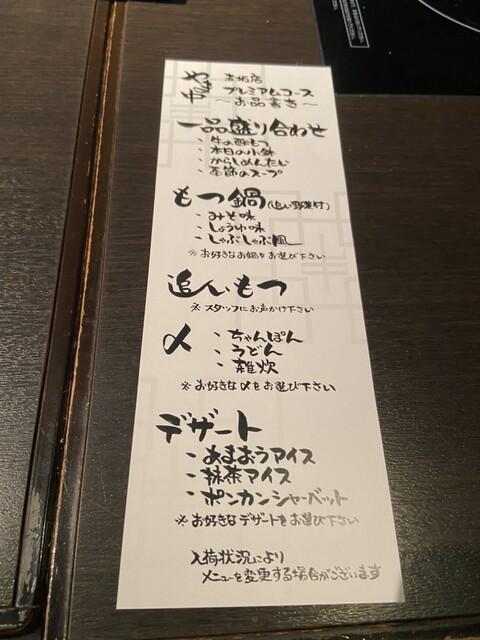 やま中 赤坂店
プレミアムコース
～お品書き～
一品盛り合わせ
・牛の酢もつ
・本日の小鉢
・からしめんたい
・季節のスープ
もつ鍋(追い野菜付)
・みそ味
・しょうゆ味
・しゃぶしゃぶ風
※お好きなお鍋をお選び下さい
追いもつ
※スタッフにお声かけ下さい
〆 ・ちゃんぽん
・うどん
・雑炊
※お好きな〆をお選び下さい
デザート
・あまおうアイス
・抹茶アイス
・ポンカンシャーベット
※お好きなデザートをお選び下さい
入荷状況により
メニューを変更する場合がございます